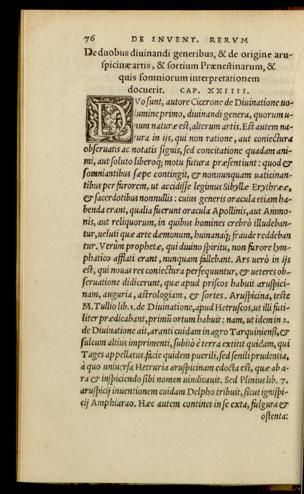 76 DE INVENT. RERVM
De duobus diuinandi generibus, & de origine aru-
spicinæ artis, & sortium Prænestinarum, &
quis somniorum interpretationem
docuerit. CAP. XXIIII.
DVo sunt, autore Cicerone de Diuinatione uo-
lumine primo, diuinandi genera, quorum u-
num naturæ est, alterum artis. Est autem na-
tura in ijs, qui non ratione, aut coniectura
obseruatis ac notatis signis, sed concitatione quadam ani-
mi, aut soluto liberoq; motu futura præsentiunt: quod &
somniantibus sæpe contingit, & nonnunquam uaticinan-
tibus per furorem, ut accidisse legimus Sibyllæ Erythrææ,
& sacerdotibus nonnullis: cuius generis oracula etiam ha-
benda erant, qualia fuerunt oracula Apollinis, aut Ammo-
nis, aut reliquorum, in quibus homines crebrò illudeban-
tur, ueluti quæ arte dæmonum, humanaq; fraude reddeban
tur. Verùm prophetæ, qui diuino spiritu, non furore lym-
phatico afflati erant, nunquam fallebant. Ars uerò in ijs
est, qui nouas res coniectura persequuntur, & ueteres ob-
seruatione didicerunt, quæ apud priscos habuit aruspici-
nam, auguria, astrologiam, & sortes. Aruspicina, teste
M. Tullio lib. 2. de Diuinatione, apud Hetruscos, ut illi futi-
liter prædicabant, primùm ortum habuit: nam, ut idem in 2.
de Diuinatione ait, aranti cuidam in agro Tarquiniensi, &
sulcum altius imprimenti, subitò è terra extitit quidam, qui
Tages appellatus, facie quidem puerili, sed senili prudentia,
à quo uniuersa Hetruria aruspicinam edocta est, quæ ab a-
ra & inspiciendo sibi nomen uindicauit. Sed Plinius lib. 7.
aruspicij inuentionem cuidam Delpho tribuit, sicut ignispi-
cij Amphiarao. Hæc autem continet in se exta, fulgura &
ostenta: